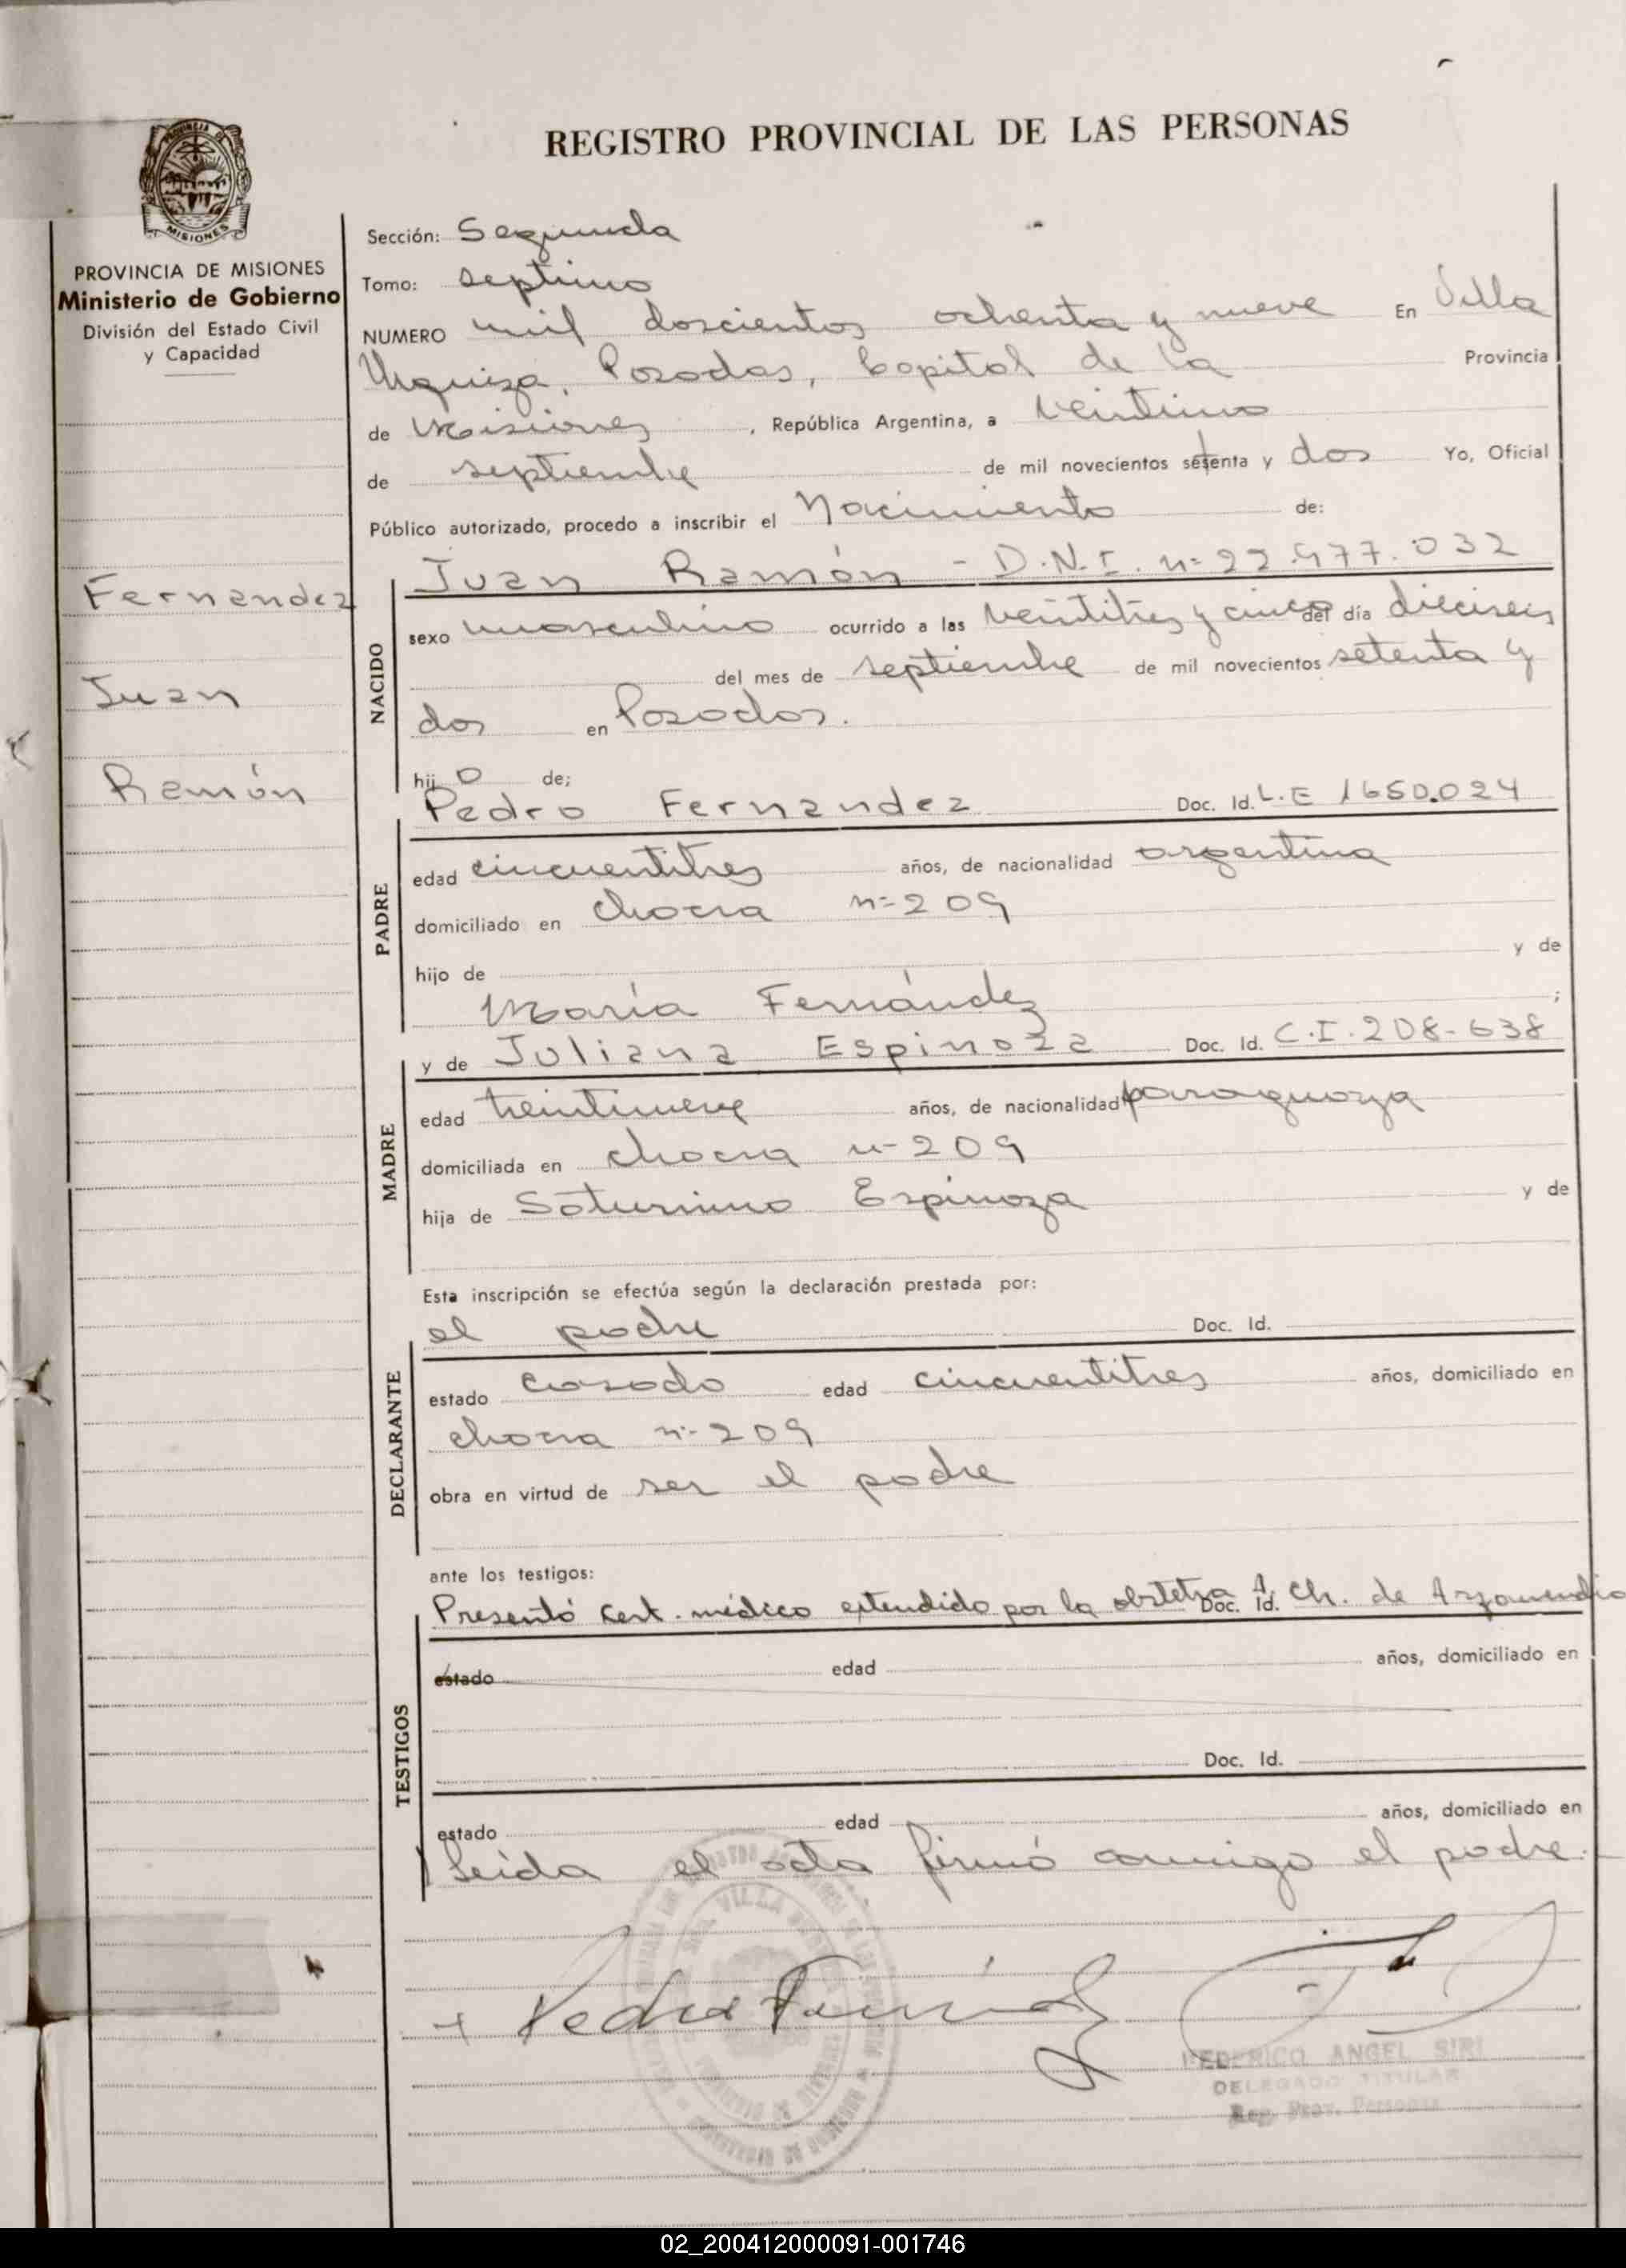 REGISTRO PROVINCIAL DE LAS PERSONAS
MISIONES
PROVINCIA DE MISIONES
Ministerio de Gobierno
División del Estado Civil
y Capacidad
Fernandez
Juan
Ramón
Sección: Segunda
Tomo: septimo
NUMERO mil doscientos ochenta y nueve En Villa
Urquiza, Posadas, Capital de la Provincia
de Misiones, República Argentina, a veintiuno
de septiembre de mil novecientos setenta y dos Yo, Oficial
Público autorizado, procedo a inscribir el Nacimiento de:
Juan Ramón - D.N.I. nº 22.977.032
NACIDO
sexo masculino ocurrido a las veintitres y cinco del día dieciseis
del mes de septiembre de mil novecientos setenta y
dos en Posadas.
hijo de;
Pedro Fernandez Doc. Id. L.E 1650.024
PADRE
edad cincuentitres años, de nacionalidad argentina
domiciliado en chacra nº 209
hijo de y de
María Fernández ;
y de Juliana Espinoza Doc. Id. C.I. 208-638
MADRE
edad treintinueve años, de nacionalidad paraguaya
domiciliada en chacra nº 209
hija de Saturnino Espinoza y de
Esta inscripción se efectúa según la declaración prestada por:
el padre Doc. Id.
DECLARANTE
estado casado edad cincuentitres años, domiciliado en
chacra nº 209
obra en virtud de ser el padre
ante los testigos:
Presentó cert. médico extendido por la obstetra Doc. Id. A. Ch. de Arzamendia
TESTIGOS
estado edad años, domiciliado en
Doc. Id.
estado edad años, domiciliado en
Leída el acta firmó conmigo el padre.
Pedro Fernández
FEDERICO ANGEL SIRI
DELEGADO TITULAR
Reg. Prov. Personas
02_200412000091-001746